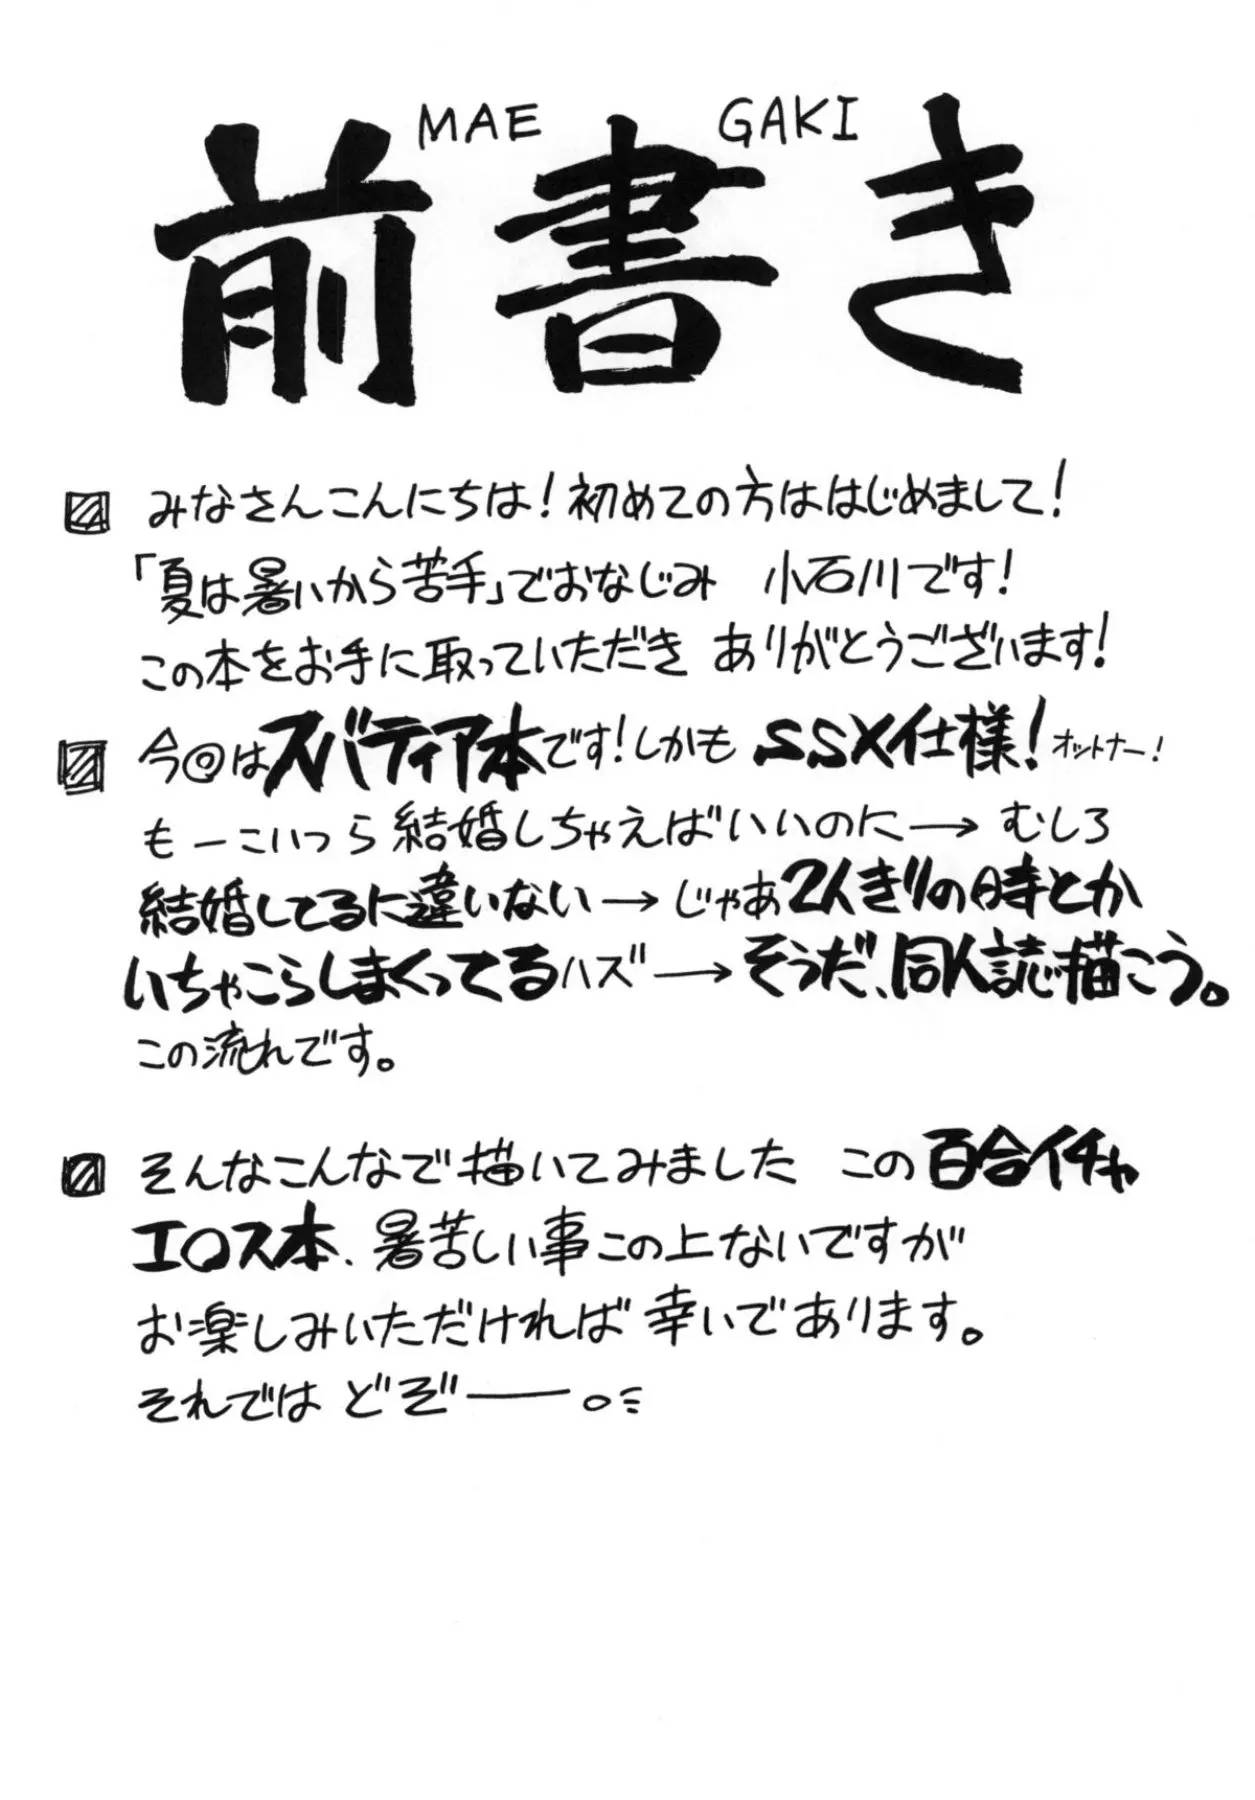 MAE GAKI
前書き
みなさんこんにちは！初めての方ははじめまして！
「夏は暑いから苦手」でおなじみ 小石川です！
この本をお手に取っていただき ありがとうございます！
今◎はスバティア本です！しかも SSX仕様！オットナー！
もーこいつら結婚しちゃえばいいのに→むしろ
結婚してるに違いない→じゃあ2人きりの時とか
いちゃこらしまくってるハズ→そうだ、同人誌描こう。
この流れです。
そんなこんなで描いてみました この百合イチャ
エロス本、暑苦しい事この上ないですが
お楽しみいただければ幸いであります。
それでは どぞ――。